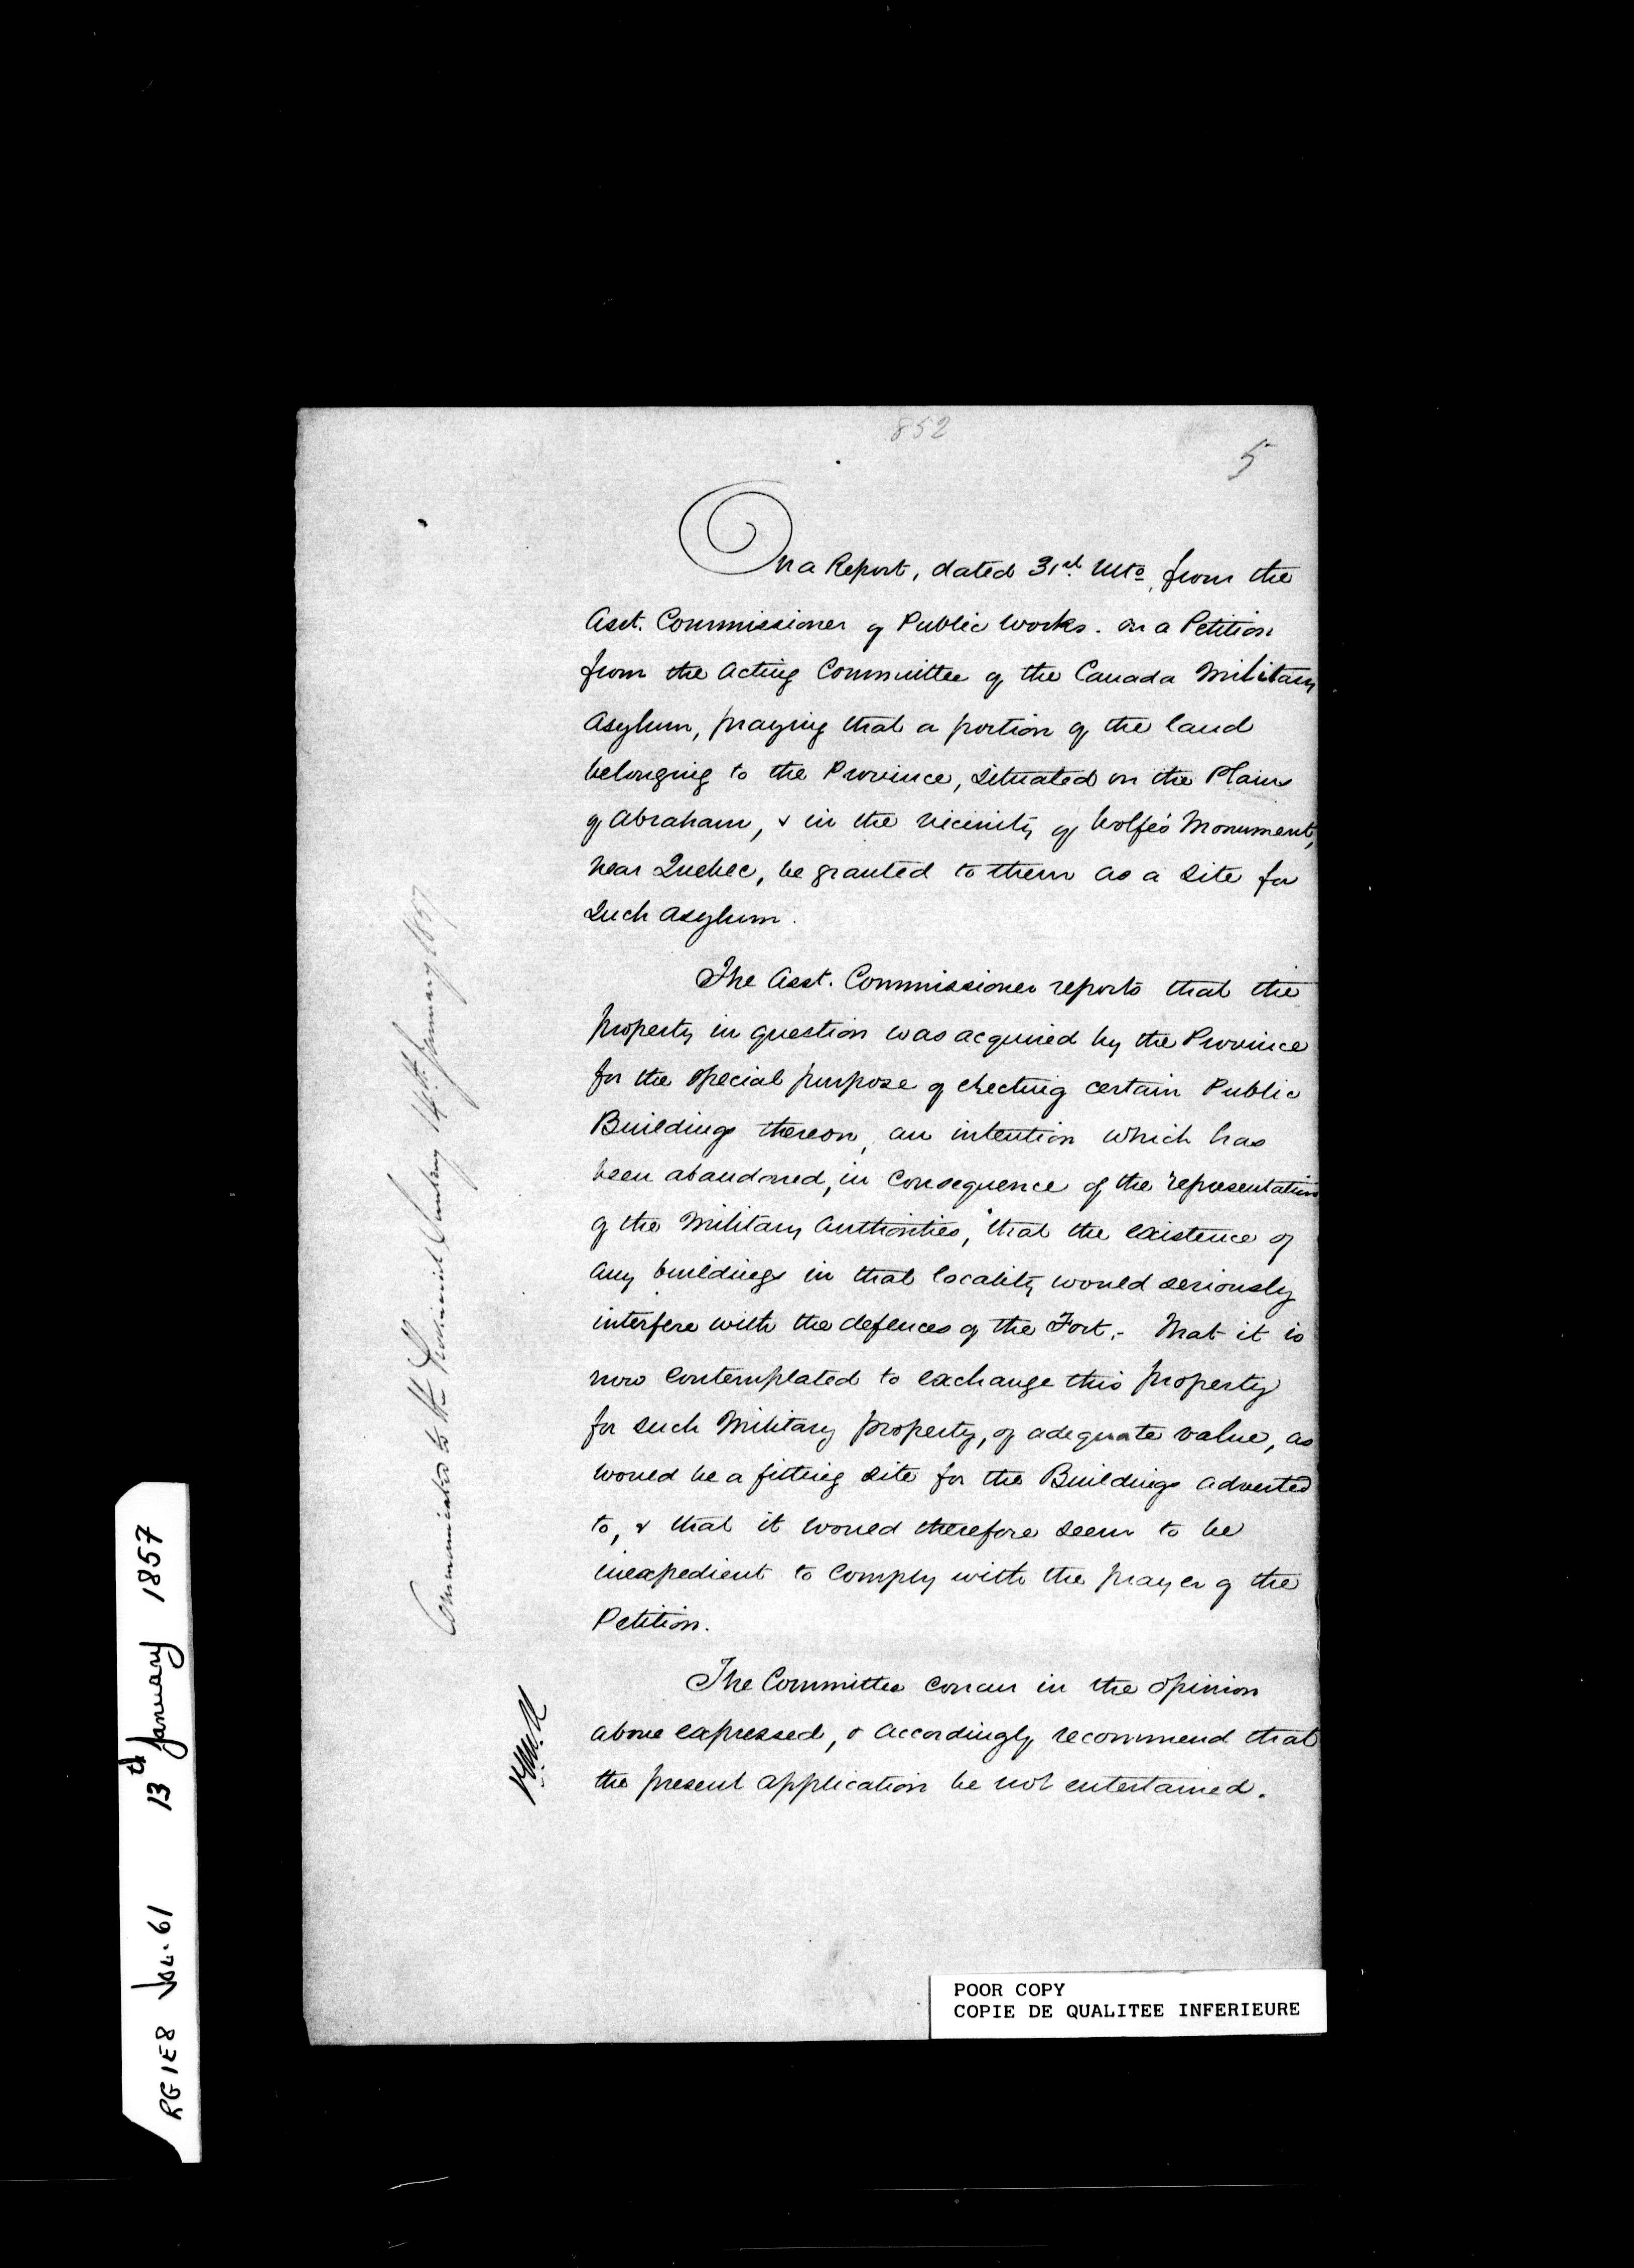 852
5
On a Report, dated 31st Ulto, from the
Asst. Commissioner of Public Works. on a Petition
from the Acting Committee of the Canada Military
Asylum, praying that a portion of the land
belonging to the Province, situated on the Plains
of Abraham, & in the vicinity of Wolfe's Monument,
near Quebec, be granted to them as a site for
such Asylum.
The Asst. Commissioner reports that the
property in question was acquired by the Province
for the special purpose of erecting certain Public
Buildings thereon, an intention which has
been abandoned, in consequence of the representation
of the Military Authorities, that the existence of
any buildings in that locality would seriously
interfere with the defences of the Fort. - That it is
now contemplated to exchange this property
for such Military property, of adequate value, as
would be a fitting site for the Buildings adverted
to, & that it would therefore seem to be
inexpedient to comply with the prayer of the
Petition.
The Committee concur in the opinion
above expressed, & accordingly recommend that
the present application be not entertained.
Communicated to the Provincial Secretary 14th January 1857
RG1E8 Vol. 61 13th January 1857
POOR COPY
COPIE DE QUALITEE INFERIEURE